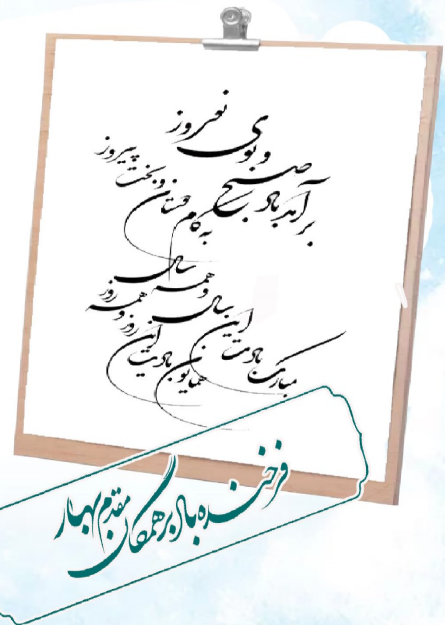 برآمد باد صبح و بوی نوروز
به کام دوستان و بخت پیروز
مبارک بادت این سال و همه سال
همایون بادت این روز و همه روز
فرخنده باد بر همگان مقدم بهار